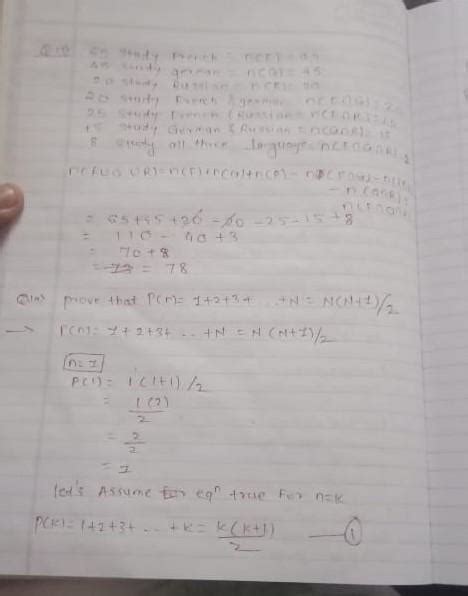 study French = n(F) =
study german = n(G) = 45
20 study Russian = n(R) =
20 study French & german n(F∩G) =
25 study French & Russian = n(F∩R) =
15 study German & Russian = n(G∩R) = 15
8 study all three language = n(F∩G∩R)
n(F∪G∪R) = n(F)+n(G)+n(R) -
- n(G∩R)
= +45+20 - 20 - 25 - 15 + 8
= 110 - 40 +
= 70+8
= = 78
prove that P(n) = 1+2+3+ .. +N = N(N+1)/2
→ P(n) = 1+2+3+ .. +N = N(N+1)/2
n=1
P(1) = 1(1+1)/2
= 1(2)/2
= 2/2
= 1
let's Assume eqⁿ true for n=k
P(k) = 1+2+3+ .. +k = k(k+1)/2 — ①